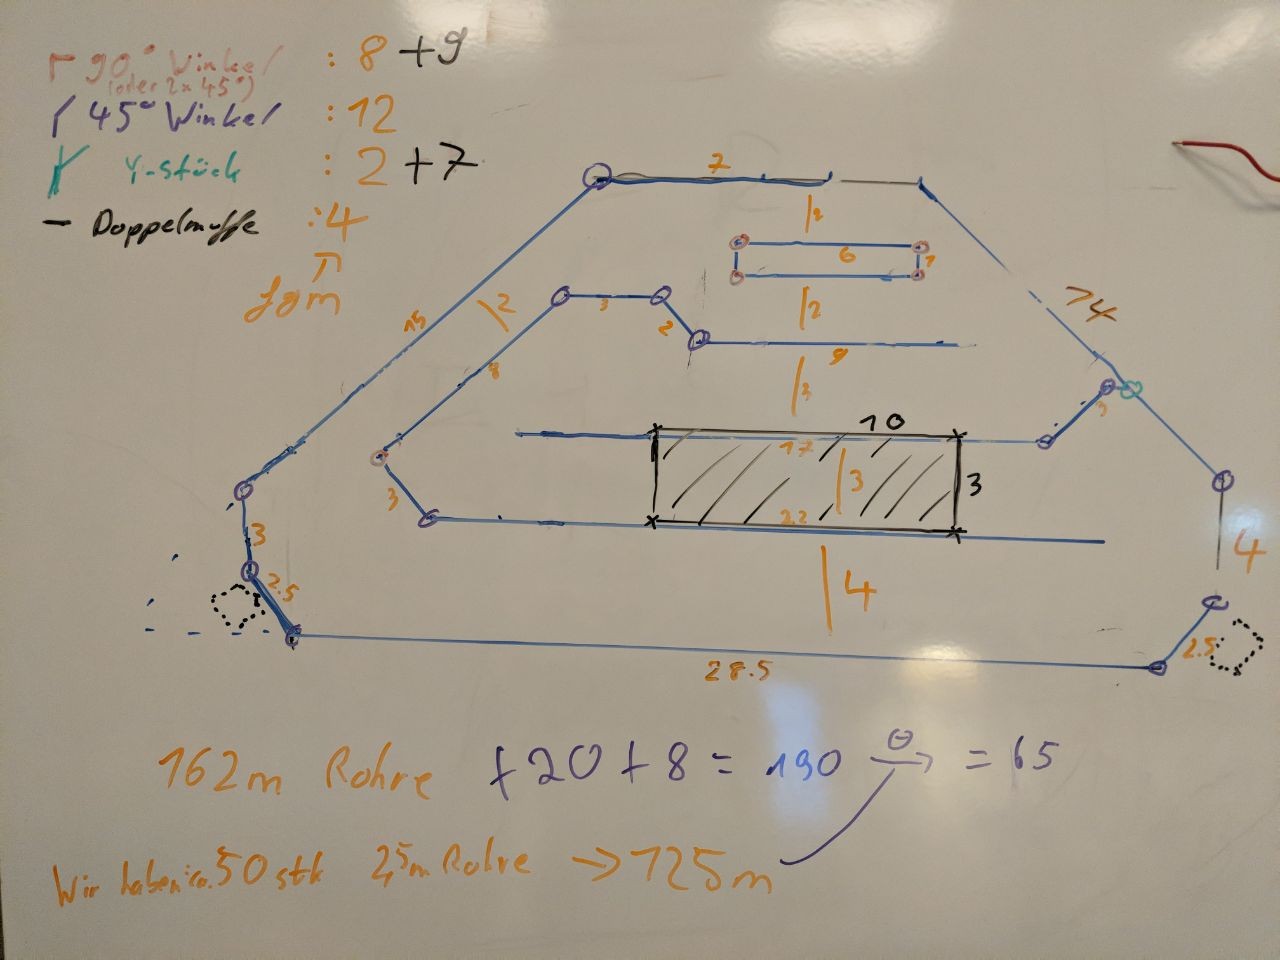 90° Winkel : 8 +9
(oder 2x 45°)
45° Winkel : 12
Y-Stück : 2 +7
– Doppelmuffe : 4
7
2
6
1
15
2
3
2
2
8
9
3
14
3
10
17
3
3
3
22
3
2.5
4
4
2.5
28.5
162m Rohre +20+8 = 190 = 65
Wir haben ca. 50 stk 2,5m Rohre → 125m